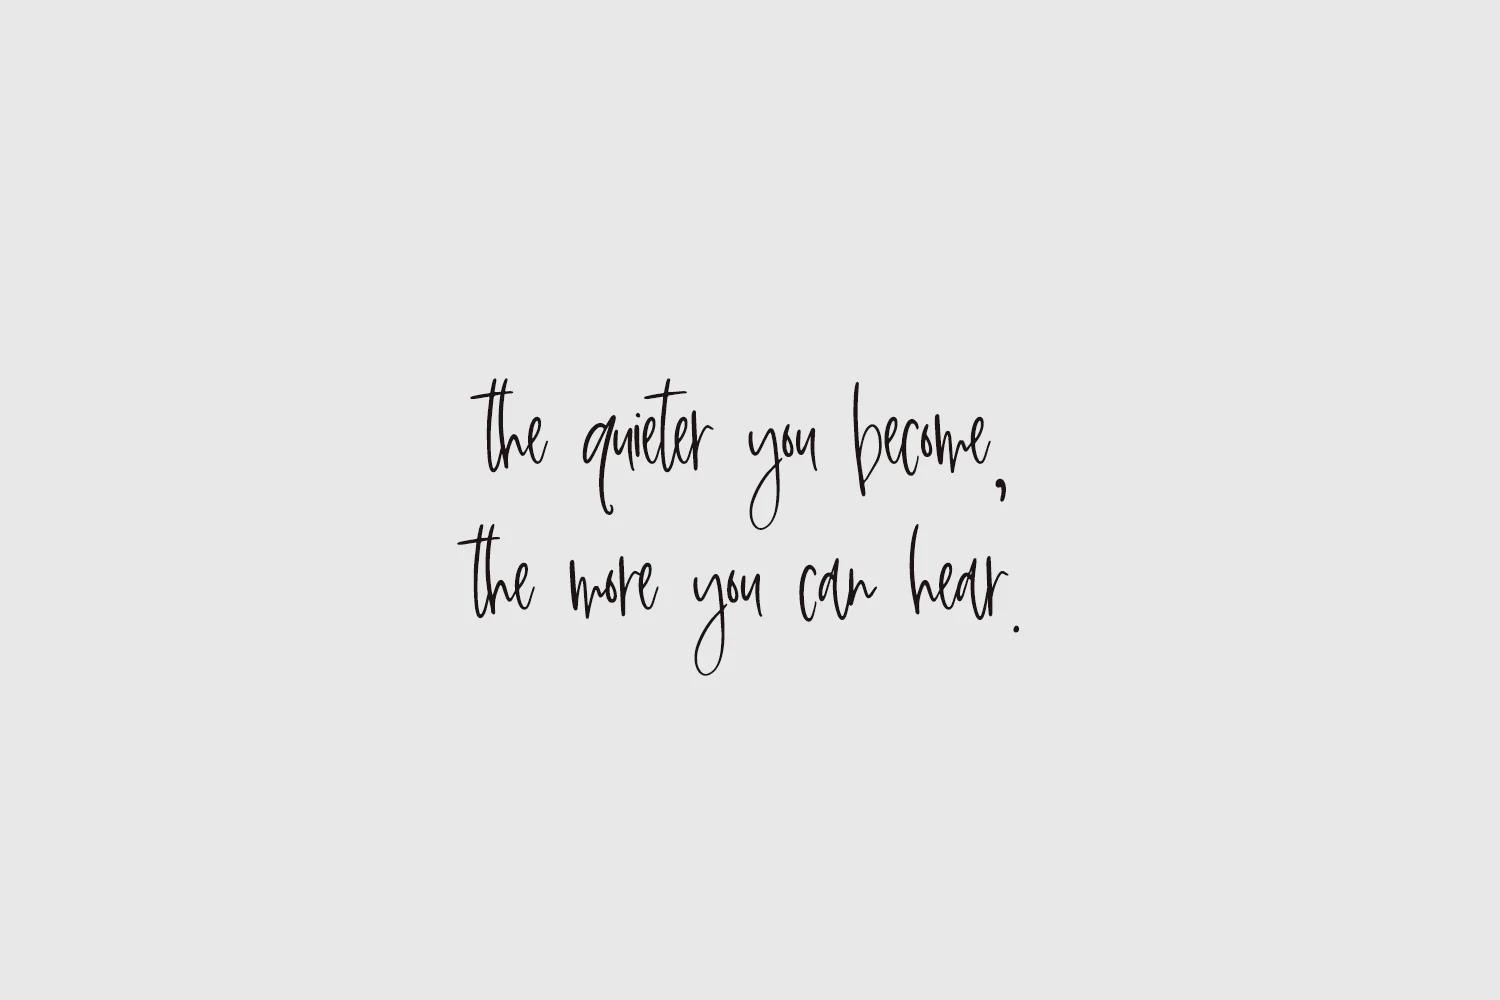 the quieter you become,
the more you can hear.